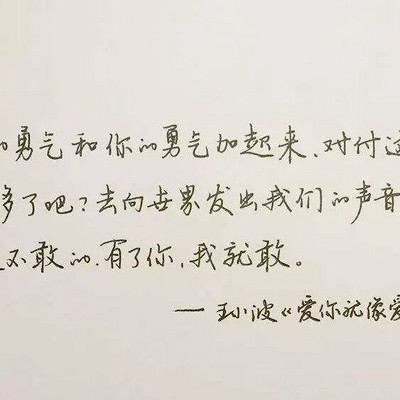 的勇气和你的勇气加起来、对付这
够了吧?去向世界发出我们的声音
不敢的.有了你,我就敢。
— 王小波《爱你就像爱